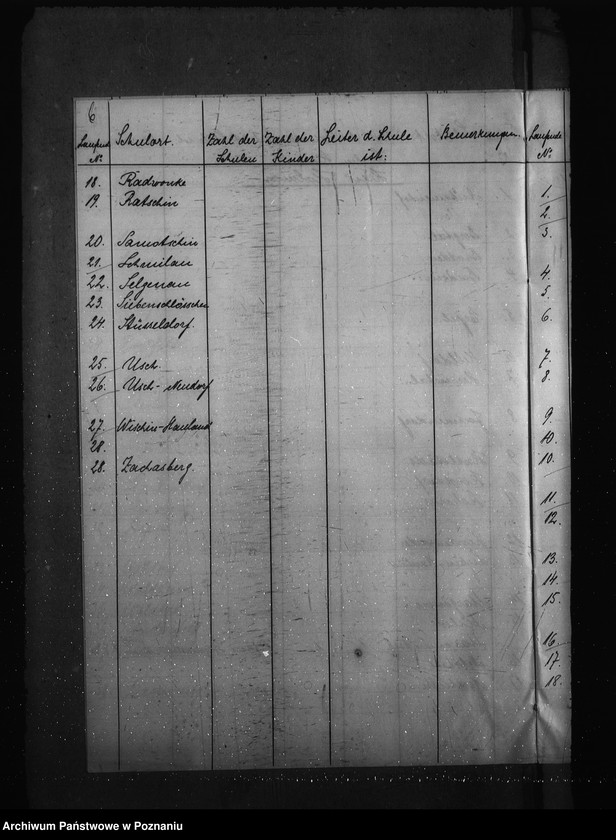 6
Laufende Schulort. Zahl der Zahl der Leiter d. Schule Bemerkungen. Laufende
No. Schulen Kinder ist: No.
18. Radwonke
19. Ratschin
20. Samotschin
21. Schmilau
22. Selgenau
23. Siebenschlösschen
24. Stüsseldorf.
25. Usch.
26. Usch-Neudorf
27. Wischin-Hauland
28.
28. Zachasberg.
1.
2.
3.
4.
5.
6.
7.
8.
9.
10.
10.
11.
12.
13.
14.
15.
16.
17.
18.
Archiwum Państwowe w Poznaniu